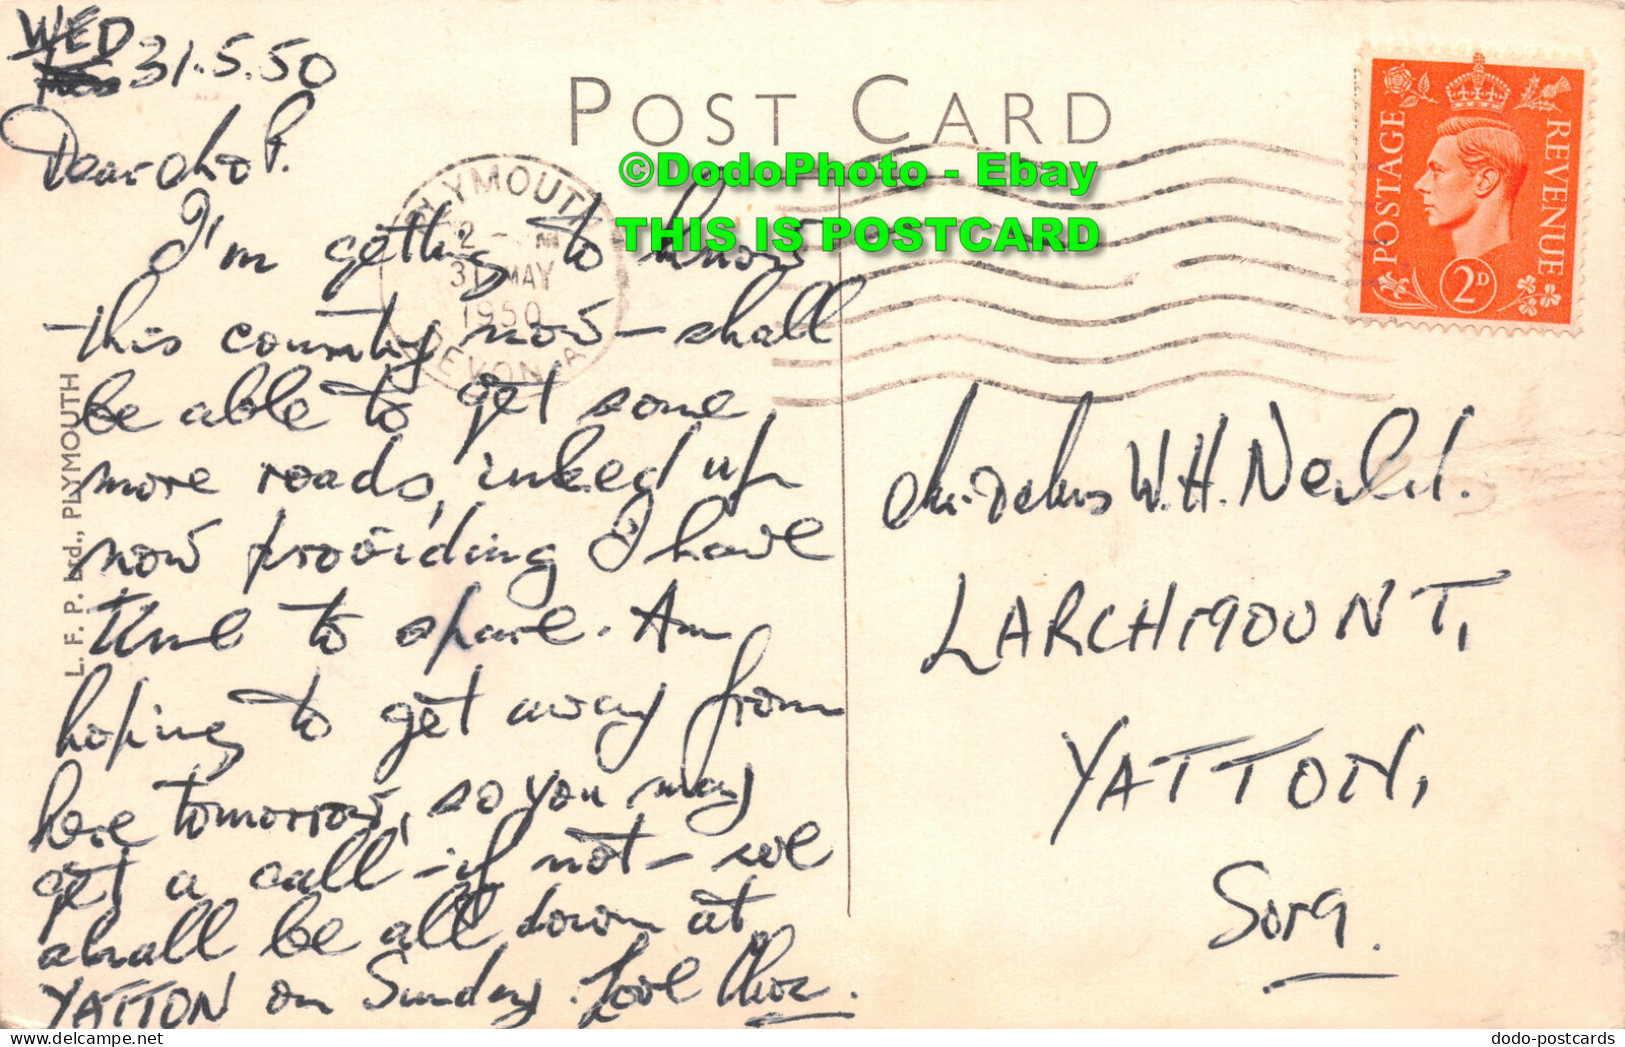 WED
31.5.50
POST CARD
POSTAGE
REVENUE
2D
©DodoPhoto - Ebay
THIS IS POSTCARD
PLYMOUTH
31 MAY
1950
DEVON A
Dear P.
I'm getting to know
this country now – shall
be able to get some
more roads, inked up
now providing I have
time to spare. Am
hoping to get away from
here tomorrow, so you may
get a call – if not – we
shall be all down at
YATTON on Sunday. Love
W.H.
LARCHMOUNT,
YATTON,
Som.
L. F. P. Ltd., PLYMOUTH
dodo-postcards